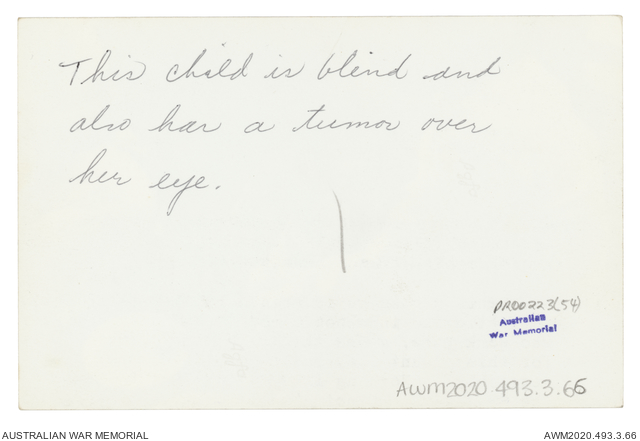 This child is blind and
also has a tumor over
her eye.
PR00223(54)
Australian
War Memorial
AWM2020.493.3.66
AUSTRALIAN WAR MEMORIAL
AWM2020.493.3.66